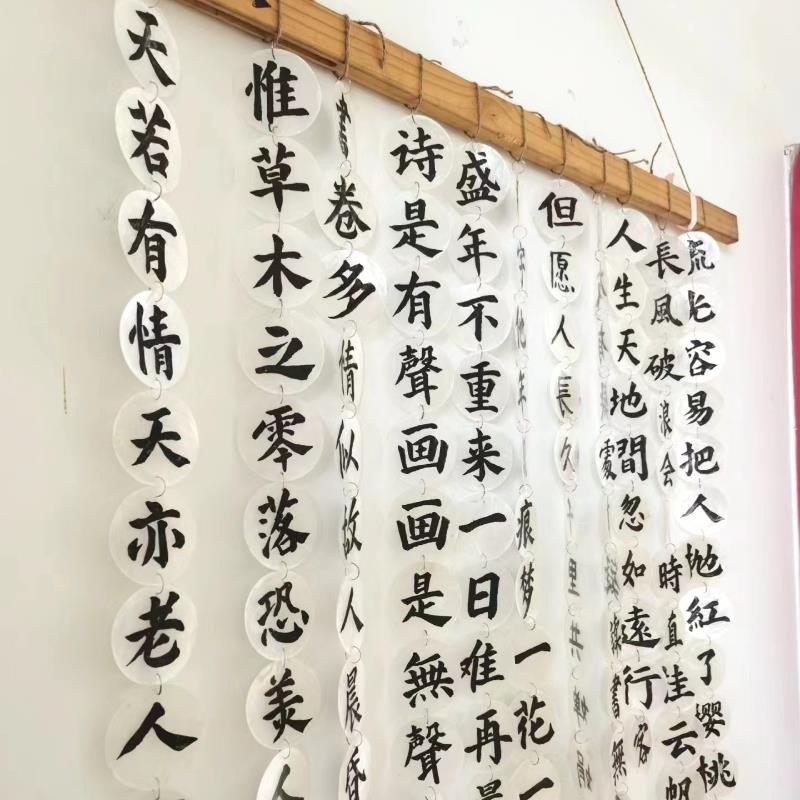 天若有情天亦老人
惟草木之零落恐美人
書卷多情似故人晨昏
诗是有聲画画是無聲
盛年不重来一日难再晨
字他年痕梦一花一
但愿人長久千里共嬋娟
人生天地間忽如遠行客
長風破浪会時直挂云帆
流光容易把人抛紅了樱桃